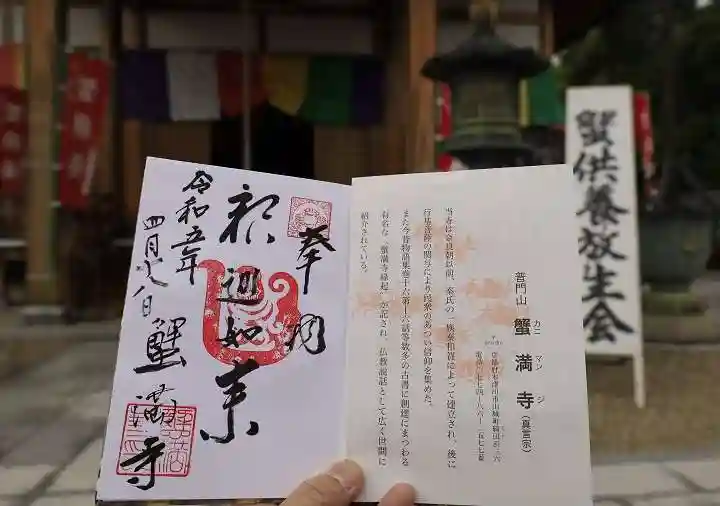 蟹供養放生会
普門山 蟹満寺(真言宗)
カニ マン ジ
京都府木津川市山城町綺田36
当寺は奈良朝以前、秦氏の一族秦和賀によって建立され、後に
行基菩薩の関与により民衆のあつい信仰を集めた。
また今昔物語集巻十六第十六話等数多の古書に創建にまつわる
有名な「蟹満寺縁起」が記され、仏教説話として広く世間に
紹介されている。
奉拝
釈迦如来
令和五年
四月十八日
蟹満寺